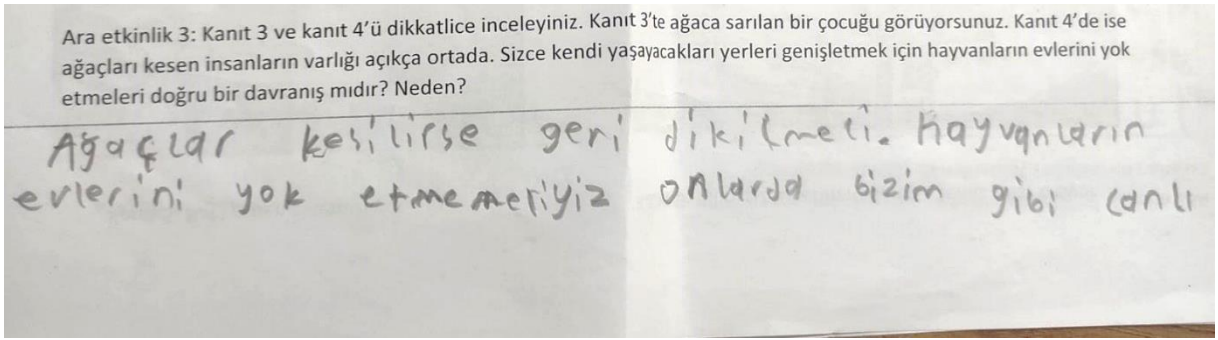 Ara etkinlik 3: Kanıt 3 ve kanıt 4'ü dikkatlice inceleyiniz. Kanıt 3'te ağaca sarılan bir çocuğu görüyorsunuz. Kanıt 4'de ise
ağaçları kesen insanların varlığı açıkça ortada. Sizce kendi yaşayacakları yerleri genişletmek için hayvanların evlerini yok
etmeleri doğru bir davranış mıdır? Neden?
Ağaçlar kesilirse geri dikilmeli. Hayvanların
evlerini yok etmemeliyiz onlarda bizim gibi canlı